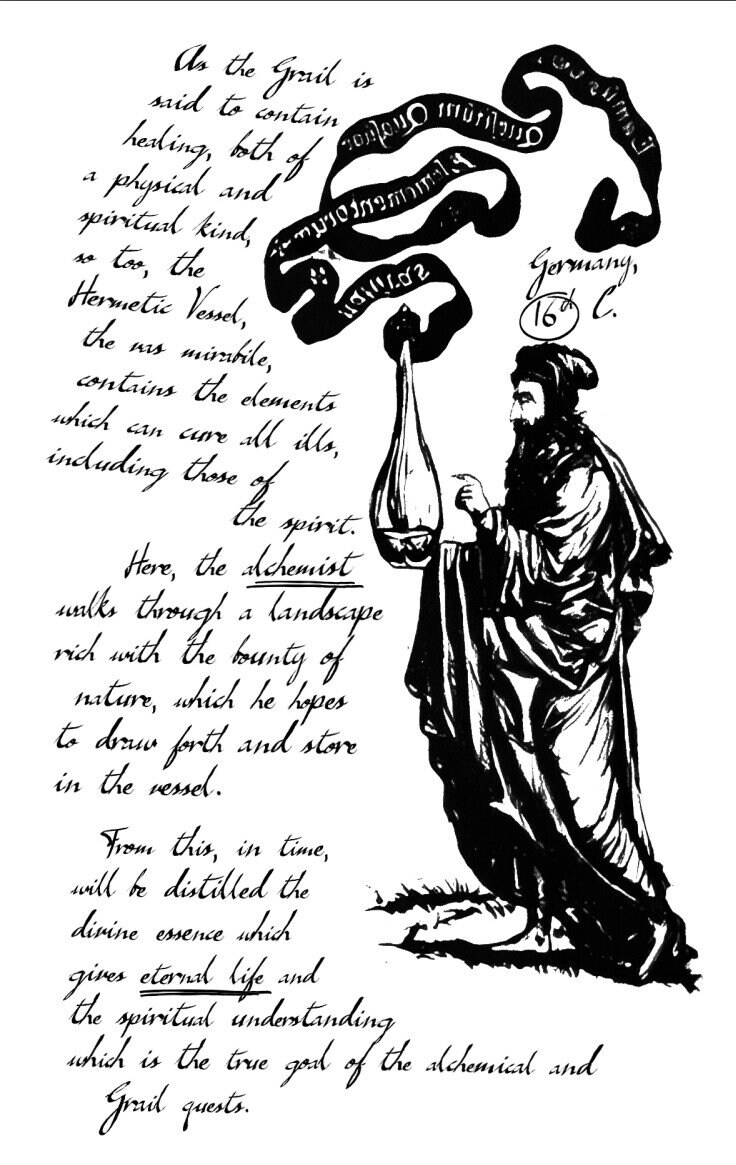 As the Grail is
said to contain
healing, both of
a physical and
spiritual kind,
so too, the
Hermetic Vessel,
the vas mirabile,
contains the elements
which can cure all ills,
including those of
the spirit.
Here, the alchemist
walks through a landscape
rich with the bounty of
nature, which he hopes
to draw forth and store
in the vessel.
From this, in time,
will be distilled the
divine essence which
gives eternal life and
the spiritual understanding
which is the true goal of the alchemical and
Grail quests.
Eamus
Quesitum Quatuor
naturas
Germany,
16th C.